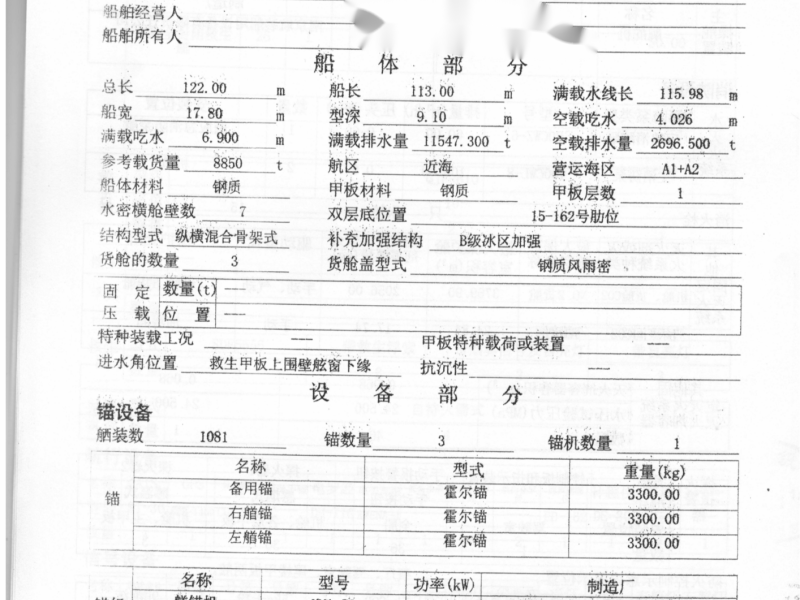 船舶经营人
船舶所有人
船 体 部 分
总长 122.00 m 船长 113.00 m 满载水线长 115.98 m
船宽 17.80 m 型深 9.10 m 空载吃水 4.026 m
满载吃水 6.900 m 满载排水量 11547.300 t 空载排水量 2696.500 t
参考载货量 8850 t 航区 近海 营运海区 A1+A2
船体材料 钢质 甲板材料 钢质 甲板层数 1
水密横舱壁数 7 双层底位置 15-162号肋位
结构型式 纵横混合骨架式 补充加强结构 B级冰区加强
货舱的数量 3 货舱盖型式 钢质风雨密
固 定 数量(t) ---
压 载 位 置 ---
特种装载工况 --- 甲板特种载荷或装置 ---
进水角位置 救生甲板上围壁舷窗下缘 抗沉性 ---
设 备 部 分
锚设备
舾装数 1081 锚数量 3 锚机数量 1
名称 型式 重量(kg)
锚 备用锚 霍尔锚 3300.00
右艏锚 霍尔锚 3300.00
左艏锚 霍尔锚 3300.00
名称 型号 功率(kW) 制造厂